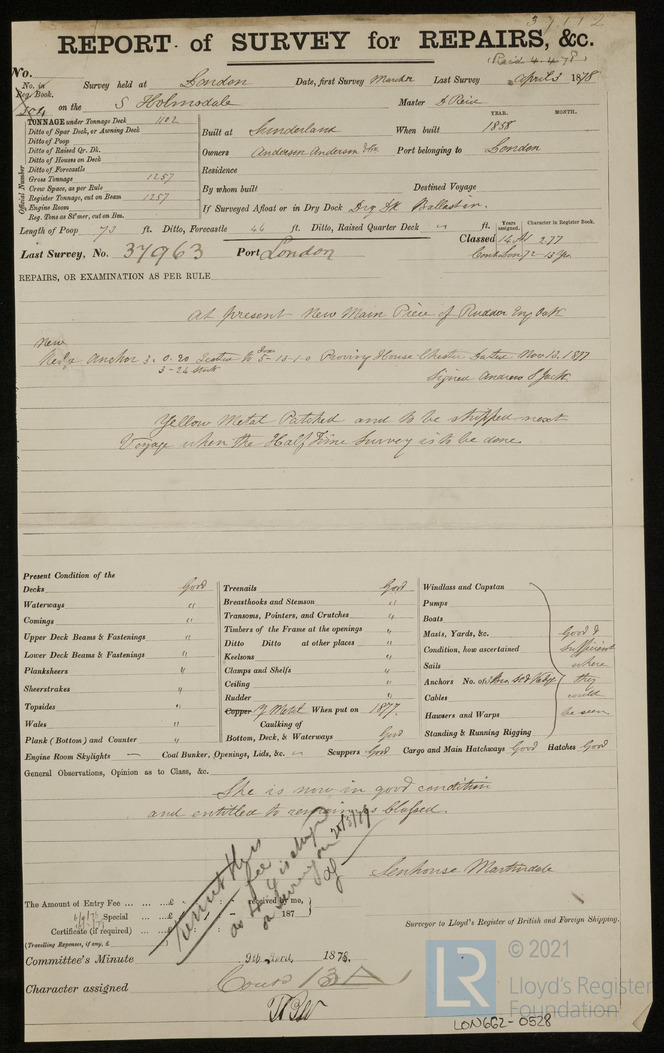 37112
REPORT of SURVEY for REPAIRS, &c.
(Recd 4.4.78)
No.
No. in Reg. Book. Survey held at London Date, first Survey March Last Survey April 3 1878
on the S Holmsdale Master D Reid
TONNAGE under Tonnage Deck 1102
YEAR. MONTH.
Ditto of Spar Deck, or Awning Deck
Built at Sunderland When built 1858
Ditto of Poop
Ditto of Raised Qr. Dk.
Owners Anderson Anderson & Co Port belonging to London
Ditto of Houses on Deck
Ditto of Forecastle
Residence
Gross Tonnage 1257
Crew Space, as per Rule
By whom built Destined Voyage
Register Tonnage, cut on Beam 1257
Engine Room
If Surveyed Afloat or in Dry Dock Dry Dk Ballast in.
Reg. Tons as St'mer, cut on Bm.
Official Number
Length of Poop 73 ft. Ditto, Forecastle 46 ft. Ditto, Raised Quarter Deck " ft.
Years assigned. Character in Register Book.
Classed 14 A1 2.77
Last Survey, No. 37963 Port London
Cont Lon 72 - 13 Yrs
REPAIRS, OR EXAMINATION AS PER RULE
At present New Main Piece of Rudder Eng Oak
New
Anchor 3. 0. 20 Tested to 5-15-1-0 Proving House Chester Dated Nov 12. 1877
3-26 Stock
Signed Andrew S Jack
Yellow Metal Patched and to be stripped next
Voyage when the Half Time Survey is to be done
Present Condition of the
Decks Good
Waterways "
Comings "
Upper Deck Beams & Fastenings "
Lower Deck Beams & Fastenings "
Planksheers "
Sheerstrakes "
Topsides "
Wales "
Plank (Bottom) and Counter "
Treenails Good
Breasthooks and Stemson "
Transoms, Pointers, and Crutches "
Timbers of the Frame at the openings "
Ditto Ditto at other places "
Keelsons "
Clamps and Shelfs "
Ceiling "
Rudder "
Copper Y Metal When put on 1877.
Caulking of
Bottom, Deck, & Waterways Good
Windlass and Capstan
Pumps
Boats
Masts, Yards, &c.
Condition, how ascertained
Sails
Anchors No. of
Cables
Hawsers and Warps
Standing & Running Rigging
Good & sufficient where they could be seen
Engine Room Skylights — Coal Bunker, Openings, Lids, &c. — Scuppers Good Cargo and Main Hatchways Good Hatches Good
General Observations, Opinion as to Class, &c.
She is now in good condition
and entitled to remain as Classed.
Senhouse Martindale
The Amount of Entry Fee ... ... ... £ : : received by me,
Special ... ... £ : :
Certificate (if required) ... £ : : 187
(Travelling Expenses, if any, £
Omit this fee
as it is charged
on Survey on 25/3/79
Surveyor to Lloyd's Register of British and Foreign Shipping.
Committee's Minute 9th April 1878.
Character assigned Contd 13 A
© 2021
LR
Lloyd's Register
Foundation
LON662-0528